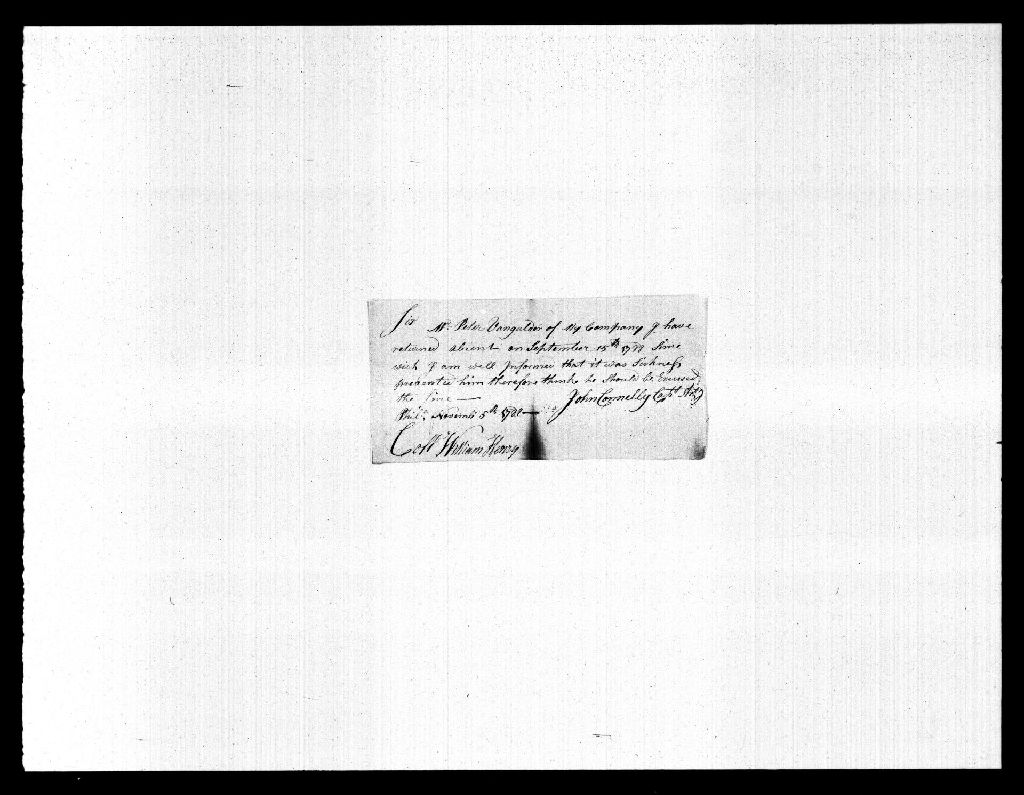 Sir
Mr. Peter Vangulder of My Company I have
returned absent on September 15th Since
wich I am well Informed that it was Sickness
prevented him therefore think he Should be Excused
the fine —
Phila. Novembr 5th John Connelly Capt
Coll William Henry